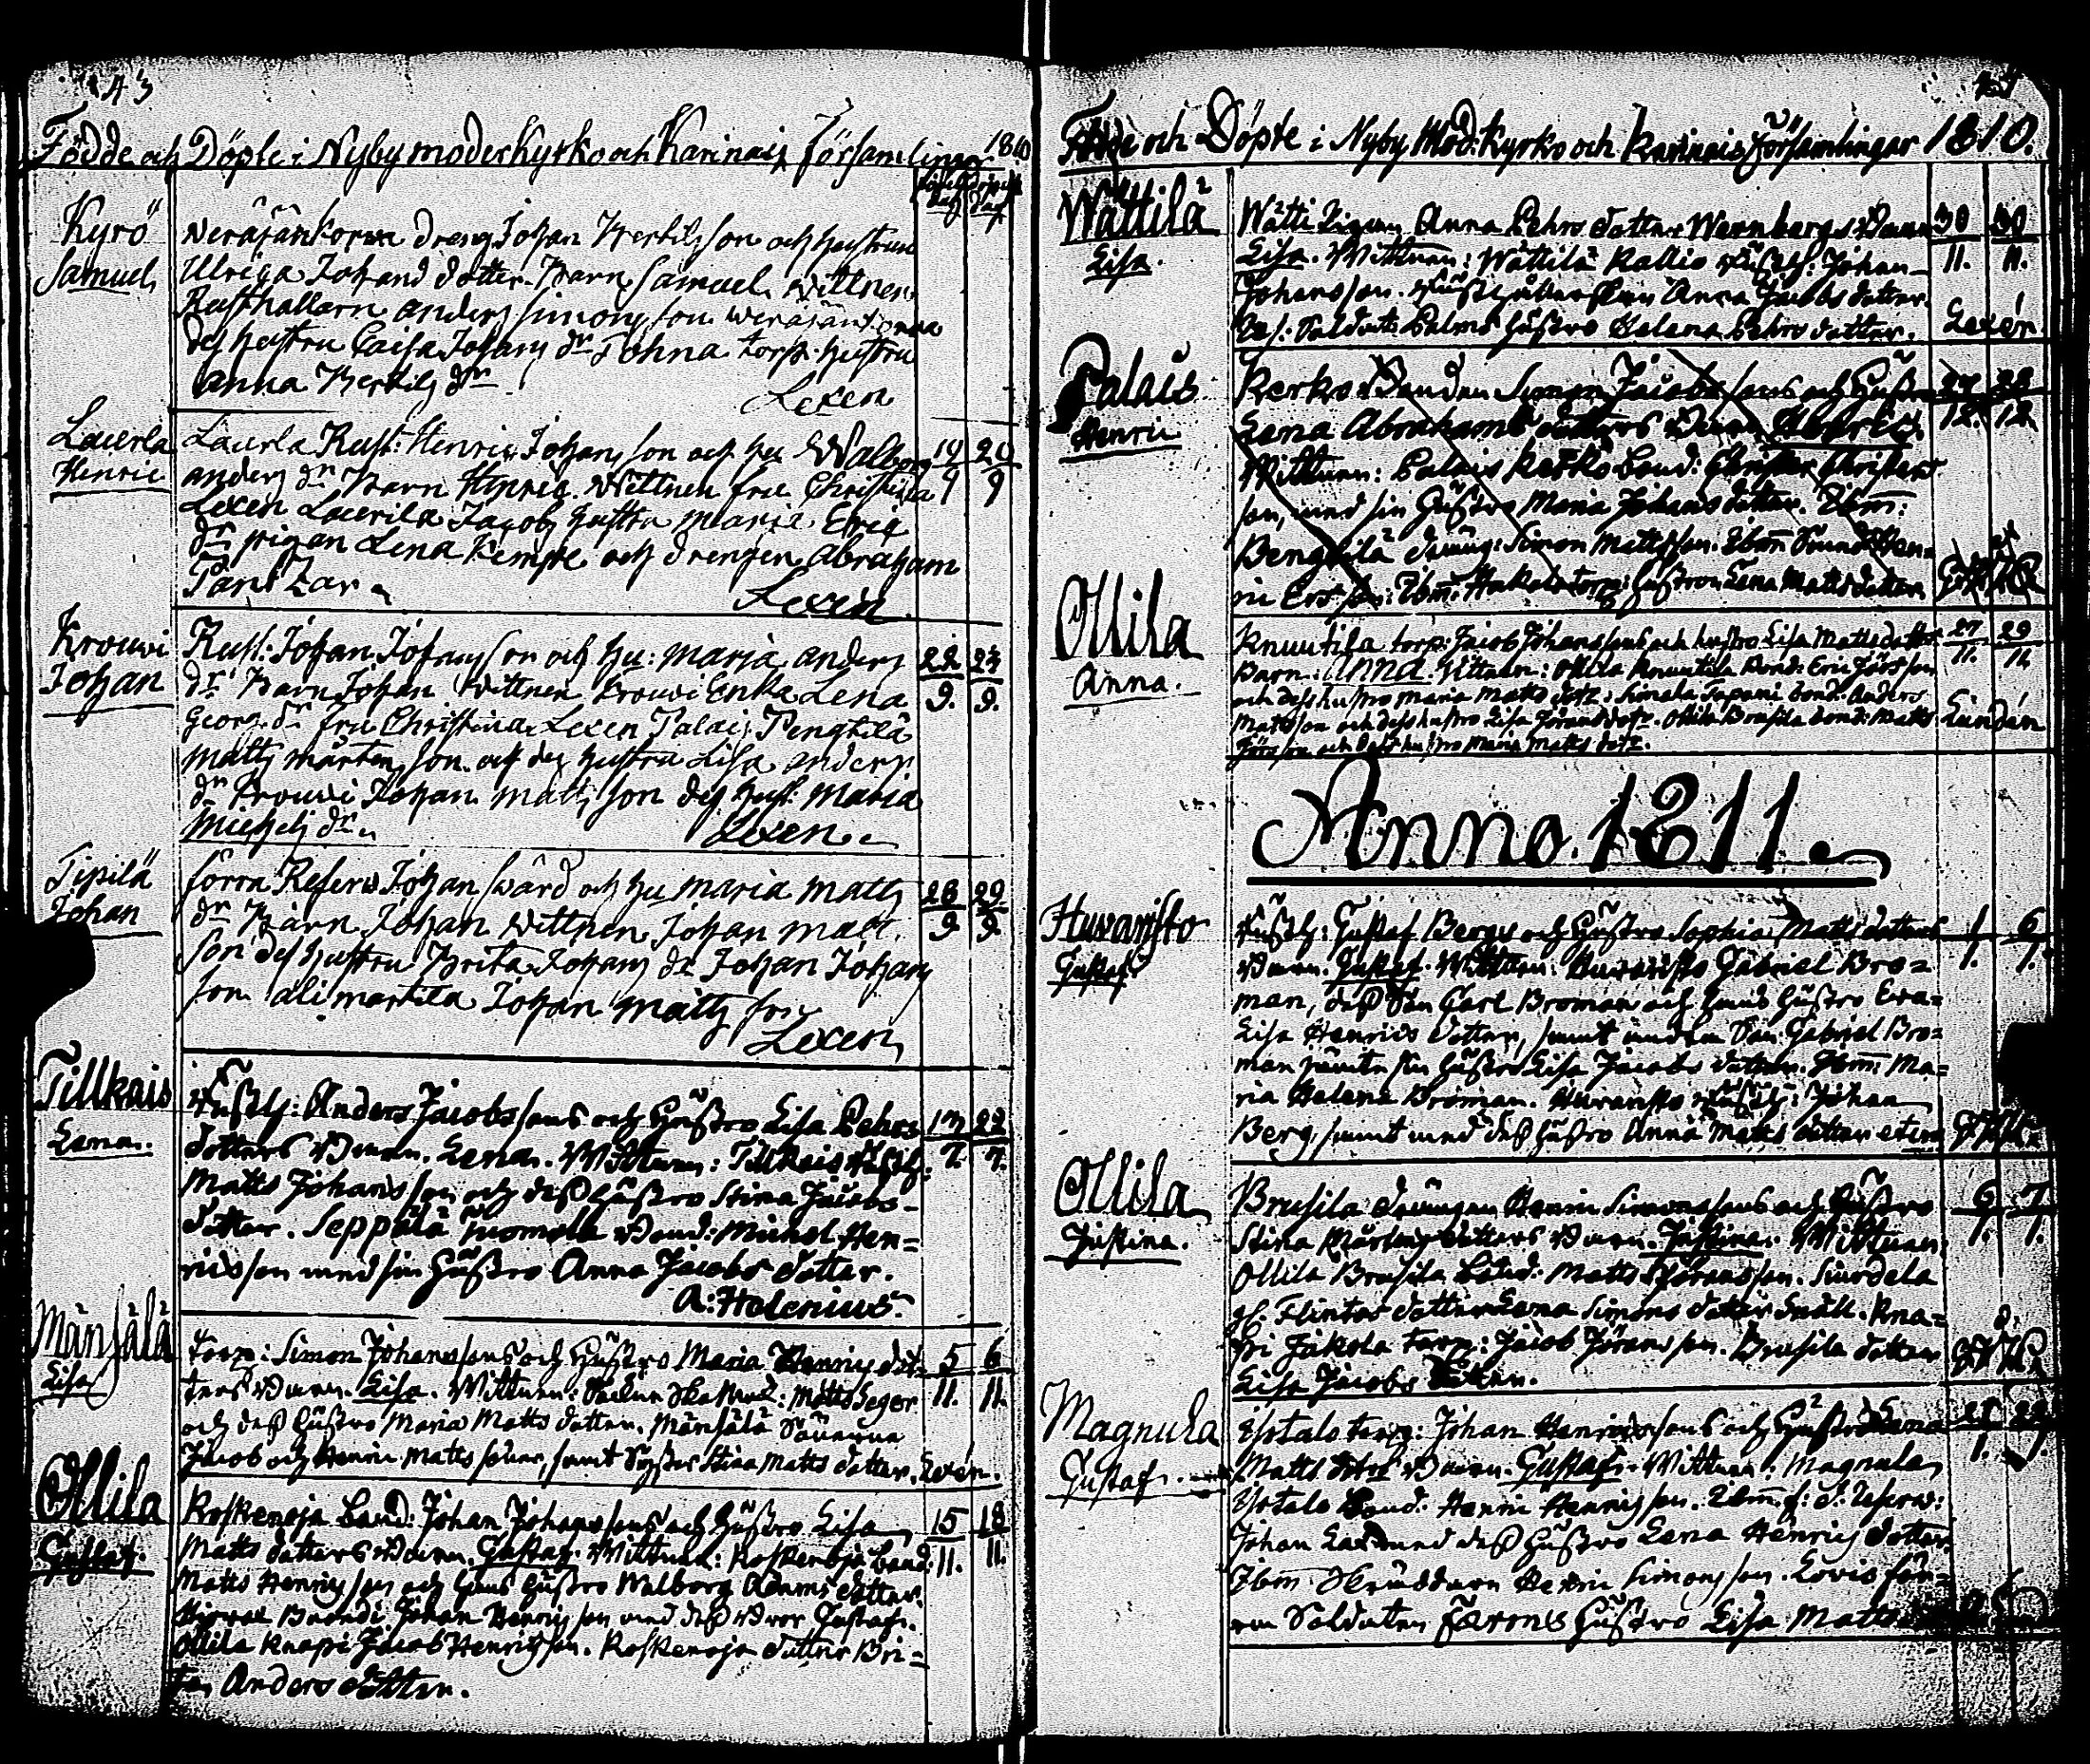 43
Födde och Döpte i Nyby moderkyrko och Karinais församlingar 1810
Kyrö
Samuel
dreng Johan Bertils son och hustrun
Ulrica Johans dotter Barn Samuel Wittnen
Rusthållarn anders simons son
des hustru Caisa Johans dr torp. hustru
anna Bertils dr
Lexen
Laurla
Henric
Laurla Rust: Henric Johans son och hu Walborg 19 20
anders dr Barn Henric Wittnen fru Christina 9 9
Lexen Laurila Jacobs hustru Maria Eric
dr pigan Lena Kempe och drengen Abraham
Lexen
Krouvi
Johan
Rust. Johan Johans son och hu: Marja anders 22 24
dr Barn Johan Wittnen Krouvi Enka Lena 9. 9.
Georg dr fru Christina Lexen Palais Pengtilä
Matts Mårtens son och des hustru Lisa anders
dr Krouvi Johan Matts son des hust. Maria
Michels dr
Lexen
Tipilä
Johan
förra Reserv Johan Swärd och hu Maria Matts 28 29
dr Barn Johan Wittnen Johan Matts 9 9
son des hustru Brita Johans dr Johan Johans
son alimartila Johan Matts son
Lexen
Tillkais
Lena.
Rusth: Anders Jacobssons och Hustro Lisa Pehrs 17 22
dotters Barn. Lena. Wittnen: Tillkais Rusth: 7. 7.
Matts Johansson och dess Hustro Stina Jacobs
dotter. Seppälä Juomola Bond: Michel Hen=
ricsson med sin Hustro Anna Jacobs dotter.
A: Holenius.
Mänsälä
Lisa
Torp: Simon Johanssons och Hustro Maria Henrics dot= 5 6
ters Barn. Lisa. Wittnen: Matts Seger 11. 11.
och dess Hustro Maria Matts dotter. Mänsälä Sönerne
Jacob och Henric Matts söner, samt Syster Stina Matts dotter. Lexén.
Ollila
Gustaf.
Koskenoja Bond: Johan Johanssons och Hustro Lisa 15 18
Matts dotters Barn. Gustaf. Wittnen: Koskenoja Bond: 11. 11.
Matts Henrics son och hans Hustro Walborg Adams dotter.
Johan Henrics son med dess Bror Gustaf.
Ollila Knapi Jacob Henricsson. Koskenoja dottren Bri=
ta Anders dotter.
Födde och Döpte i Nyby Mod: Kyrko och Karinais församlingar 1810.
Wättilä
Lisa.
Wätti Pigan Anna Pehrs dotter Wennbergs Barn 30 30
Lisa. Wittnen: Wättilä Kallis Rusth: Johan 11. 11.
Johansson. Anna Jacobs dotter.
Soldats Palms Hustro Helena Pehrs dotter. Lexén
Palais
Henric
Kerko Bonden Simon Jacobssons och Hustro 27 28
Lena Abrahams dotters Barn Henric. 12. 12.
Wittnen: Palais Kerko Bond: Christer Christers
son, med sin Hustro Maria Johans dotter. Ibm:
Bengtilä dräng: Simon Mattsson. Ibm
Hustron Lena Matts dotter
Ollila
Anna.
Knuutila torp: Jacob Johanssons och hustro Lisa Mattsdotters 27 29
Barn: Anna. Vittnen: Ollila Knuutila Bond: Eric Jöransson 11. 11.
och dess hustro Maria Matts dotr. Simala Tapani bond: Anders
Mattsson och dess hustro Lisa Jöransdotr. Ollila Brusila bond: Matts Lundén
Jöransson och dess hustro Maria Matts dotr.
Anno. 1811.
Huvaristo
Gustaf
Rusth: Gustaf Bergs och Hustro Sophia Matts dotters 1. 6.
Barn. Gustaf. Wittnen. Huvaristo Gabriel Bro= 1. 1.
man, dess Son Carl Broman och hans Hustro Eva=
Lisa Henrics dotter, samt andra Son Gabriel Bro=
man jämte sin Hustro Lisa Jacobs dotter. Ibm: Ma=
ria Helena Broman. Huvaristo Rusth: Johan
Berg, samt med dess Hustro Anna Matts dotter
Ollila
Justina.
Brusila drängen Henric Simonssons och Hustro 6 7
Stina Mårtens dotters Barn. Justina. Wittnen: 1. 1.
Ollila Brusila Bond: Matts Jöransson.
dotter Lena Simons dotter Kna=
pi Jakola Torp: Jacob Jöransson. Brusila dotter
Lisa Jacobs dotter.
Magnula
Gustaf.
Yrtala torp: Johan Henricssons och Hustro Lena 21 22
Matts dotrs Barn. Gustaf. Wittnen: Magnula 1. 1.
Yrtala Bond: Henric Henricsson.
Johan med dess Hustro Lena Henrics dotter.
Ibm Skräddaren Henric Simonsson.
Soldaten Farons Hustro Lisa Matts